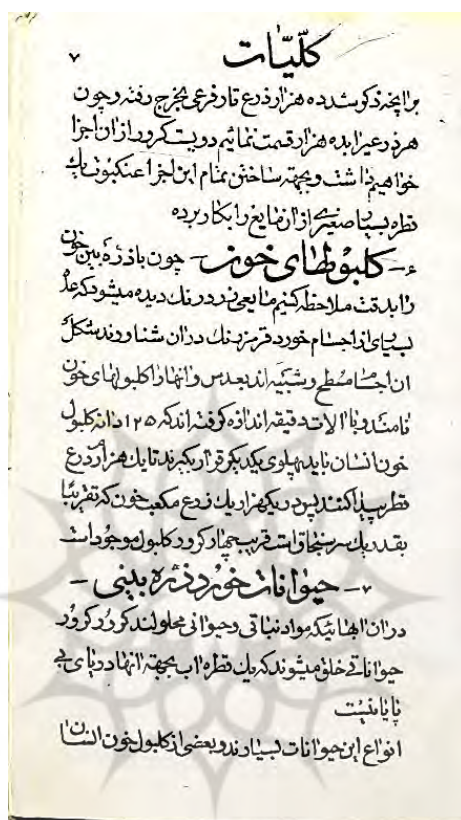 کلیّات
۷
بر اینچه ذکر شده هزار ذرع تار فرعی بخرج رفته و چون
هر ذرع را بده هزار قسمت نمائیم دویست کرور از ان اجزا
خواهیم داشت و بجهته ساختن تمام این اجزا عنکبوت یک
قطره بسیار صغیری از ان مایع را بکار برده
۶- کلبولهای خون - چون با ذره بین خون
را بدقت ملاحظه کنیم مایعی زرد رنک دیده میشود که عدّه
بسیاری از اجسام خورد قرمز رنک در ان شناورند شکل
ان اجسام مسطح و شبیه اند بعدس و انها را کلبولهای خون
نامند و با الات دقیقه اندازه کرفته اند که ۱۲۵ دانه کلبول
خون انسان باید پهلوی یکدیکر قرار بکیرند تا یک هزارم ذرع
قطر پیدا کنند پس در یکهزار یک ذرع مکعب خون که تقریبًا
بقدر یک سر سنجاق است قریب چهار کرور کلبول موجود است
۷- حیوانات خورد ذره بینی -
در ان ابهائیکه مواد نباتی و حیوانی محلولند کرور کرور
حیواناتی خلق میشوند که یک قطره اب بجهته انها دریای بی
پایانیست
انواع این حیوانات بسیارند و بعضی از کلبول خون انسان